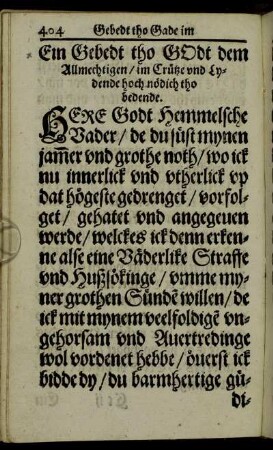 404 Gebedt tho Gade im
Ein Gebedt tho GOdt dem
Allmechtigen / im Crütze vnd Ly-
dende hoch nödich tho
bedende.
HERE Godt Hemmelsche
Vader / de du süst mynen
jam̃er vnd grothe noth / wo ick
nu innerlick vnd vtherlick vp
dat högeste gedrenget / vorfol-
get / gehatet vnd angegeuen
werde / welckes ick denn erken-
ne alse eine Väderlike Straffe
vnd Hußsökinge / vmme my-
ner grothen Sündẽ willen / de
ick mit mynem veelfoldigẽ vn-
gehorsam vnd Auertredinge
wol vordenet hebbe / öuerst ick
bidde dy / du barmhertige gü-
di-